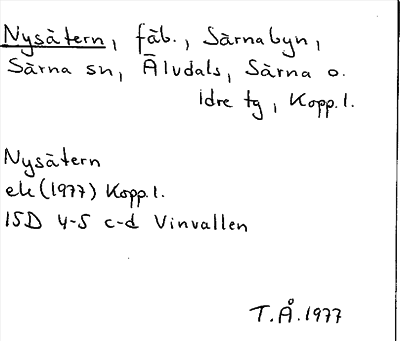 Nysätern, fäb., Särnabyn,
Särna sn, Älvdals, Särna o.
Idre tg, Kopp.l.
Nysätern
ek (1977) Kopp.l.
15D 4-5 c-d Vinvallen
T.Å.1977